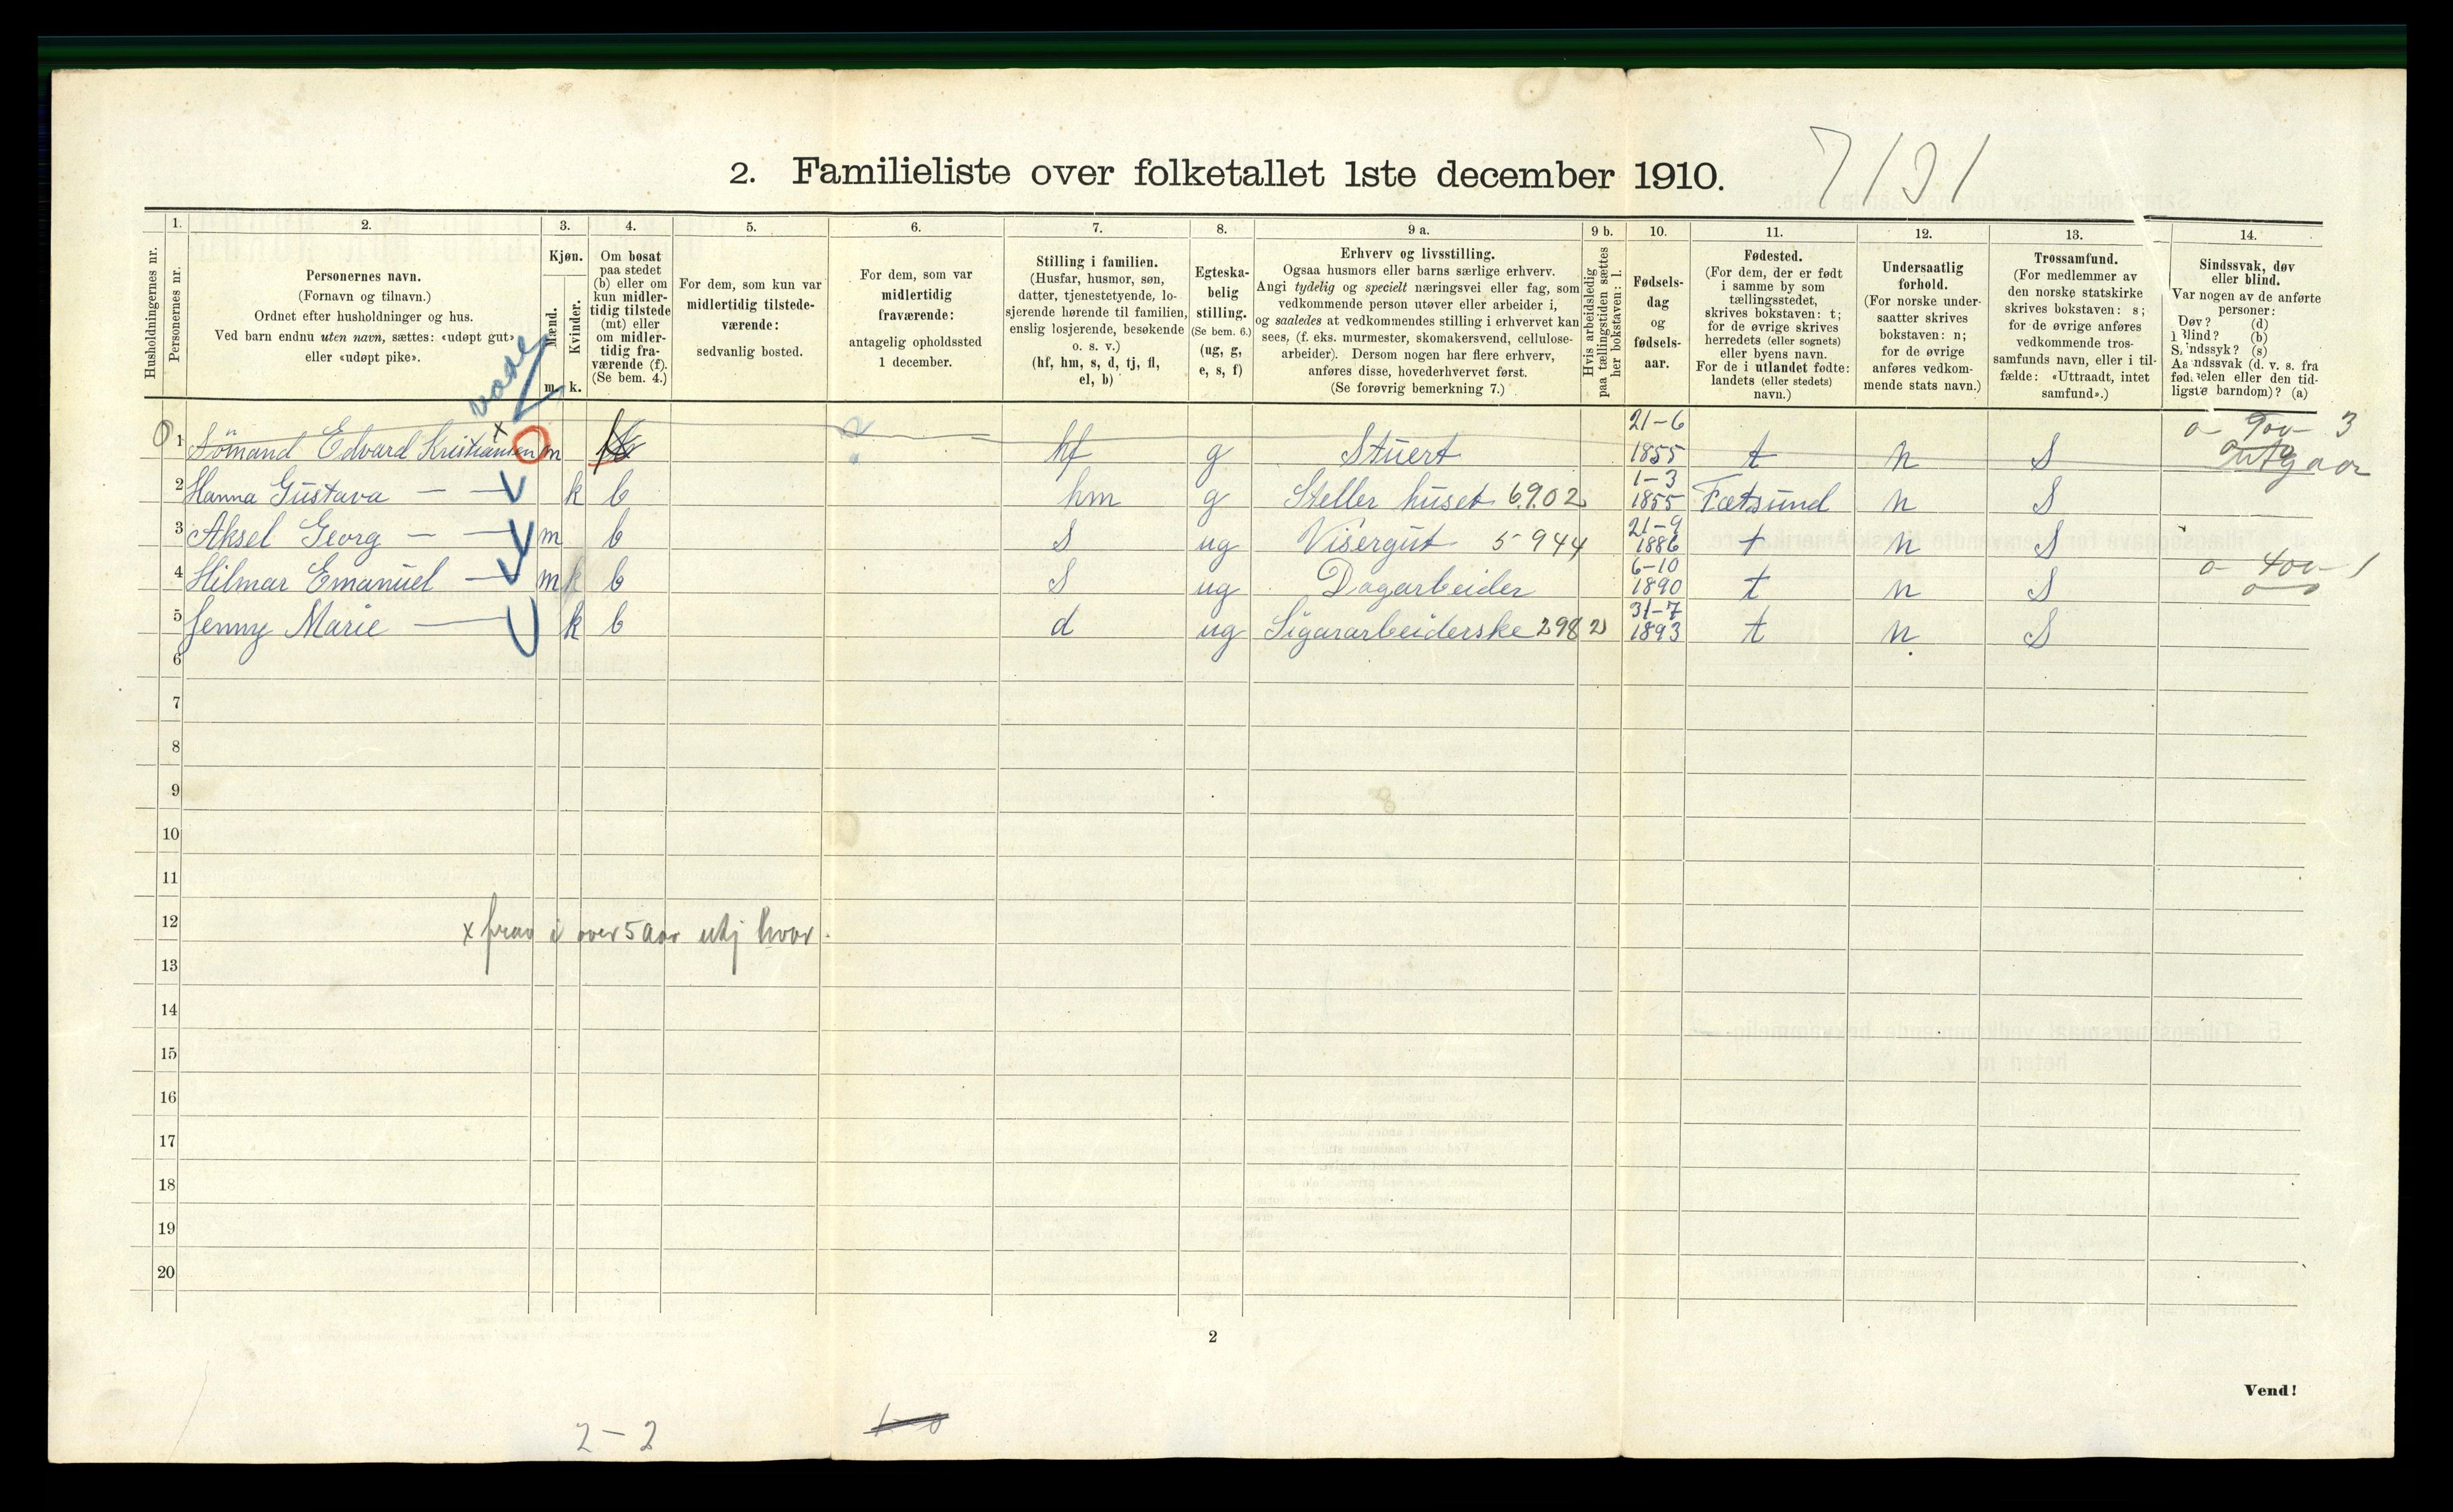 2. Familieliste over folketallet 1ste december 1910.
Husholdningernes nr.
1. Personernes nr.
2. Personernes navn.
(Fornavn og tilnavn.)
Ordnet efter husholdninger og hus.
Ved barn endnu uten navn, sættes: «udøpt gut»
eller «udøpt pike».
3. Kjøn.
Mænd. m.
Kvinder. k.
4. Om bosat
paa stedet
(b) eller om
kun midler-
tidig tilstede
(mt) eller
om midler-
tidig fra-
værende (f).
(Se bem. 4.)
5. For dem, som kun var
midlertidig tilstede-
værende:
sedvanlig bosted.
6. For dem, som var
midlertidig
fraværende:
antagelig opholdssted
1 december.
7. Stilling i familien.
(Husfar, husmor, søn,
datter, tjenestetyende, lo-
sjerende hørende til familien,
enslig losjerende, besøkende
o. s. v.)
(hf, hm, s, d, tj, fl,
el, b)
8. Egteska-
belig
stilling.
(Se bem. 6.)
(ug, g,
e, s, f)
9 a. Erhverv og livsstilling.
Ogsaa husmors eller barns særlige erhverv.
Angi tydelig og specielt næringsvei eller fag, som
vedkommende person utøver eller arbeider i,
og saaledes at vedkommendes stilling i erhvervet kan
sees, (f. eks. murmester, skomakersvend, cellulose-
arbeider). Dersom nogen har flere erhverv,
anføres disse, hovederhvervet først.
(Se forøvrig bemerkning 7.)
9 b. Hvis arbeidsledig
paa tællingstiden sættes
her bokstaven: l.
10. Fødsels-
dag
og
fødsels-
aar.
11. Fødested.
(For dem, der er født
i samme by som
tællingsstedet,
skrives bokstaven: t;
for de øvrige skrives
herredets (eller sognets)
eller byens navn.
For de i utlandet fødte:
landets (eller stedets)
navn.)
12. Undersaatlig
forhold.
(For norske under-
saatter skrives
bokstaven: n;
for de øvrige
anføres vedkom-
mende stats navn.)
13. Trossamfund.
(For medlemmer av
den norske statskirke
skrives bokstaven: s;
for de øvrige anføres
vedkommende tros-
samfunds navn, eller i til-
fælde: «Uttraadt, intet
samfund».)
14. Sindssvak, døv
eller blind.
Var nogen av de anførte
personer:
Døv? (d)
Blind? (b)
Sindssyk? (s)
Aandssvak (d. v. s. fra
fødselen eller den tid-
ligste barndom)? (a)
0 1 Sømand Edvard Kristiansen x m hf g Stuert 21-6 1855 t n S utgaar
2 Hanna Gustava — k b hm g Steller huset 6902 1-3 1855 Fætsund n S
3 Aksel Georg — m b S ug Visergut 5944 21-9 1886 t n S
4 Hilmar Emanuel — m b S ug Dagarbeider 6-10 1890 t n S
5 Jenny Marie — k b d ug Sigararbeiderske 2982 31-7 1893 t n S
6
7
8
9
10
11
12
x frav i over 5 aar hvor.
13
14
15
16
17
18
19
20
2
Vend!
2-2